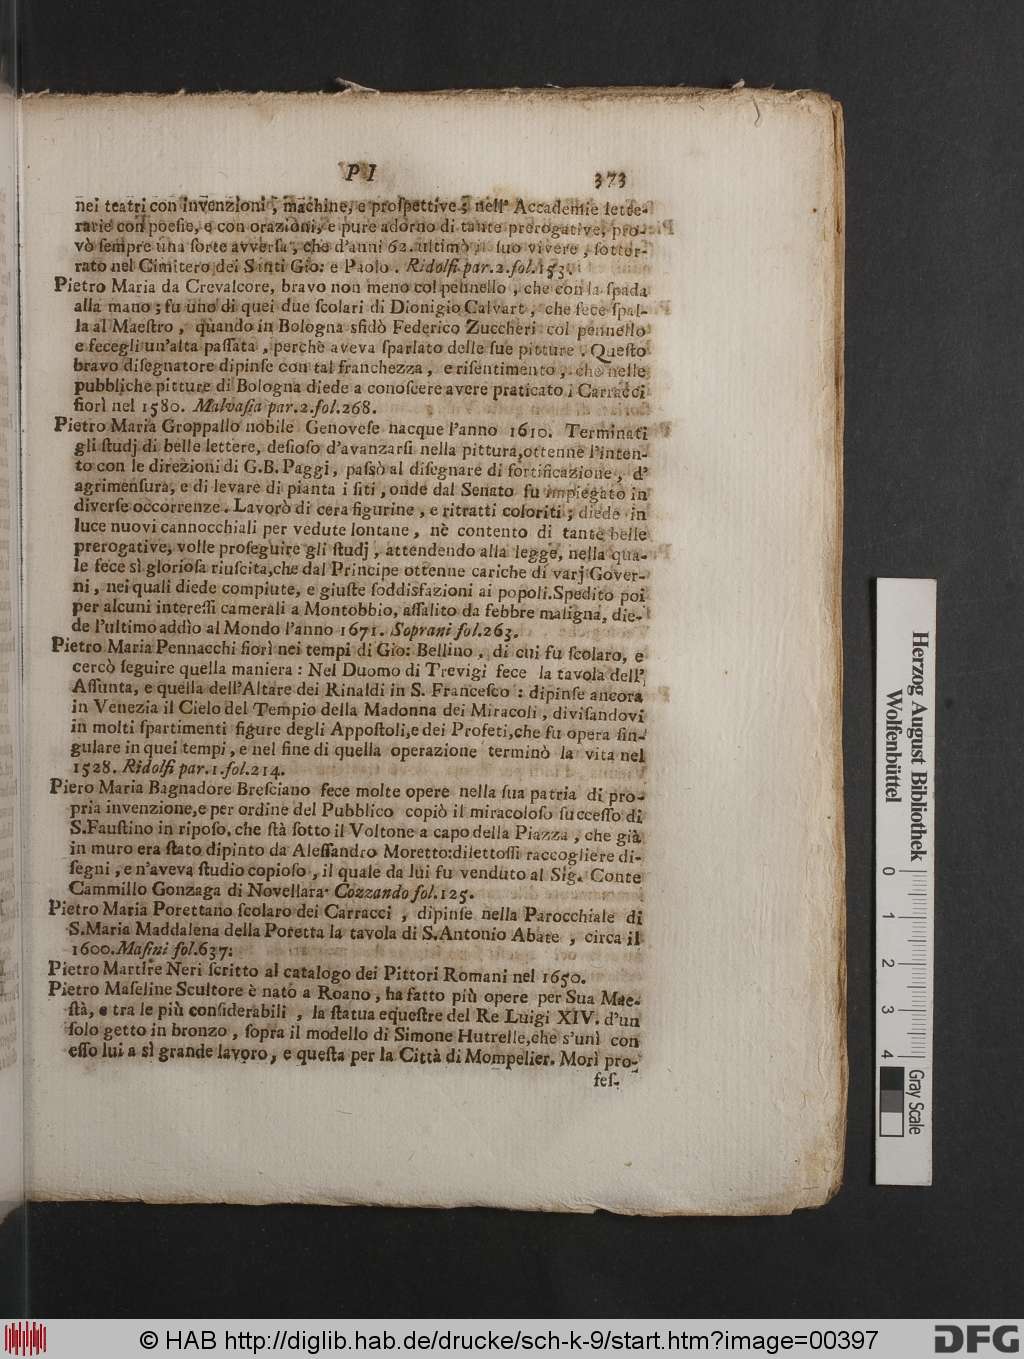 P I 373
nei teatri con invenzioni, machine, e proſpettive; nell' Accademie lette-
rarie con poeſie, e con orazioni, e pure adorno di tante prerogative, pro-
vò ſempre una ſorte avverſa, che d'anni 62. ultimò il ſuo vivere, ſotter-
rato nel Cimitero dei Santi Gio: e Paolo. Ridolfi par. 2. fol. 153.
Pietro Maria da Crevalcore, bravo non meno col pennello, che con la ſpada
alla mano; fu uno di quei due ſcolari di Dionigio Calvart, che fece ſpal-
la al Maeſtro, quando in Bologna sfidò Federico Zuccheri col pennello
e fecegli un'alta paſſata, perchè aveva ſparlato delle ſue pitture. Queſto
bravo diſegnatore dipinſe con tal franchezza, e riſentimento, che nelle
pubbliche pitture di Bologna diede a conoſcere avere praticato i Carracci
fiorì nel 1580. Malvaſia par. 2. fol. 268.
Pietro Maria Groppallo nobile Genoveſe nacque l'anno 1610. Terminati
gli ſtudj di belle lettere, deſioſo d'avanzarſi nella pittura, ottenne l'inten-
to con le direzioni di G. B. Paggi, paſsò al diſegnare di fortificazione, d'
agrimenſura, e di levare di pianta i ſiti, onde dal Senato fu impiegato in
diverſe occorrenze. Lavorò di cera figurine, e ritratti coloriti; diede in
luce nuovi cannocchiali per vedute lontane, nè contento di tante belle
prerogative, volle proſeguire gli ſtudj, attendendo alla legge, nella qua-
le fece sì glorioſa riuſcita, che dal Principe ottenne cariche di varj Gover-
ni, nei quali diede compiute, e giuſte ſoddisfazioni ai popoli. Spedito poi
per alcuni intereſſi camerali a Montobbio, aſſalito da febbre maligna, die-
de l'ultimo addìo al Mondo l'anno 1671. Soprani fol. 263.
Pietro Maria Pennacchi fiorì nei tempi di Gio: Bellino, di cui fu ſcolaro, e
cercò ſeguire quella maniera: Nel Duomo di Trevigi fece la tavola dell'
Aſſunta, e quella dell'Altare dei Rinaldi in S. Franceſco: dipinſe ancora
in Venezia il Cielo del Tempio della Madonna dei Miracoli, diviſandovi
in molti ſpartimenti figure degli Appoſtoli, e dei Profeti, che fu opera ſin-
gulare in quei tempi, e nel fine di quella operazione terminò la vita nel
1528. Ridolfi par. 1. fol. 214.
Piero Maria Bagnadore Breſciano fece molte opere nella ſua patria di pro-
pria invenzione, e per ordine del Pubblico copiò il miracoloſo ſucceſſo di
S. Fauſtino in ripoſo, che ſtà ſotto il Voltone a capo della Piazza, che già
in muro era ſtato dipinto da Aleſſandro Moretto: dilettoſſi raccogliere di-
ſegni, e n'aveva ſtudio copioſo, il quale da lui fu venduto al Sig. Conte
Cammillo Gonzaga di Novellara. Cozzando fol. 125.
Pietro Maria Porettano ſcolaro dei Carracci, dipinſe nella Parocchiale di
S. Maria Maddalena della Poretta la tavola di S. Antonio Abate, circa il
1600. Maſini fol. 637:
Pietro Martire Neri ſcritto al catalogo dei Pittori Romani nel 1650.
Pietro Maſeline Scultore è nato a Roano, ha fatto più opere per Sua Mae-
ſtà, e tra le più conſiderabili, la ſtatua equeſtre del Re Luigi XIV. d'un
ſolo getto in bronzo, ſopra il modello di Simone Hutrelle, che s'unì con
eſſo lui a sì grande lavoro, e queſta per la Città di Mompelier. Morì pro-
feſ-
Herzog August Bibliothek
Wolfenbüttel
0 1 2 3 4
Gray Scale
© HAB http://diglib.hab.de/drucke/sch-k-9/start.htm?image=00397
DFG